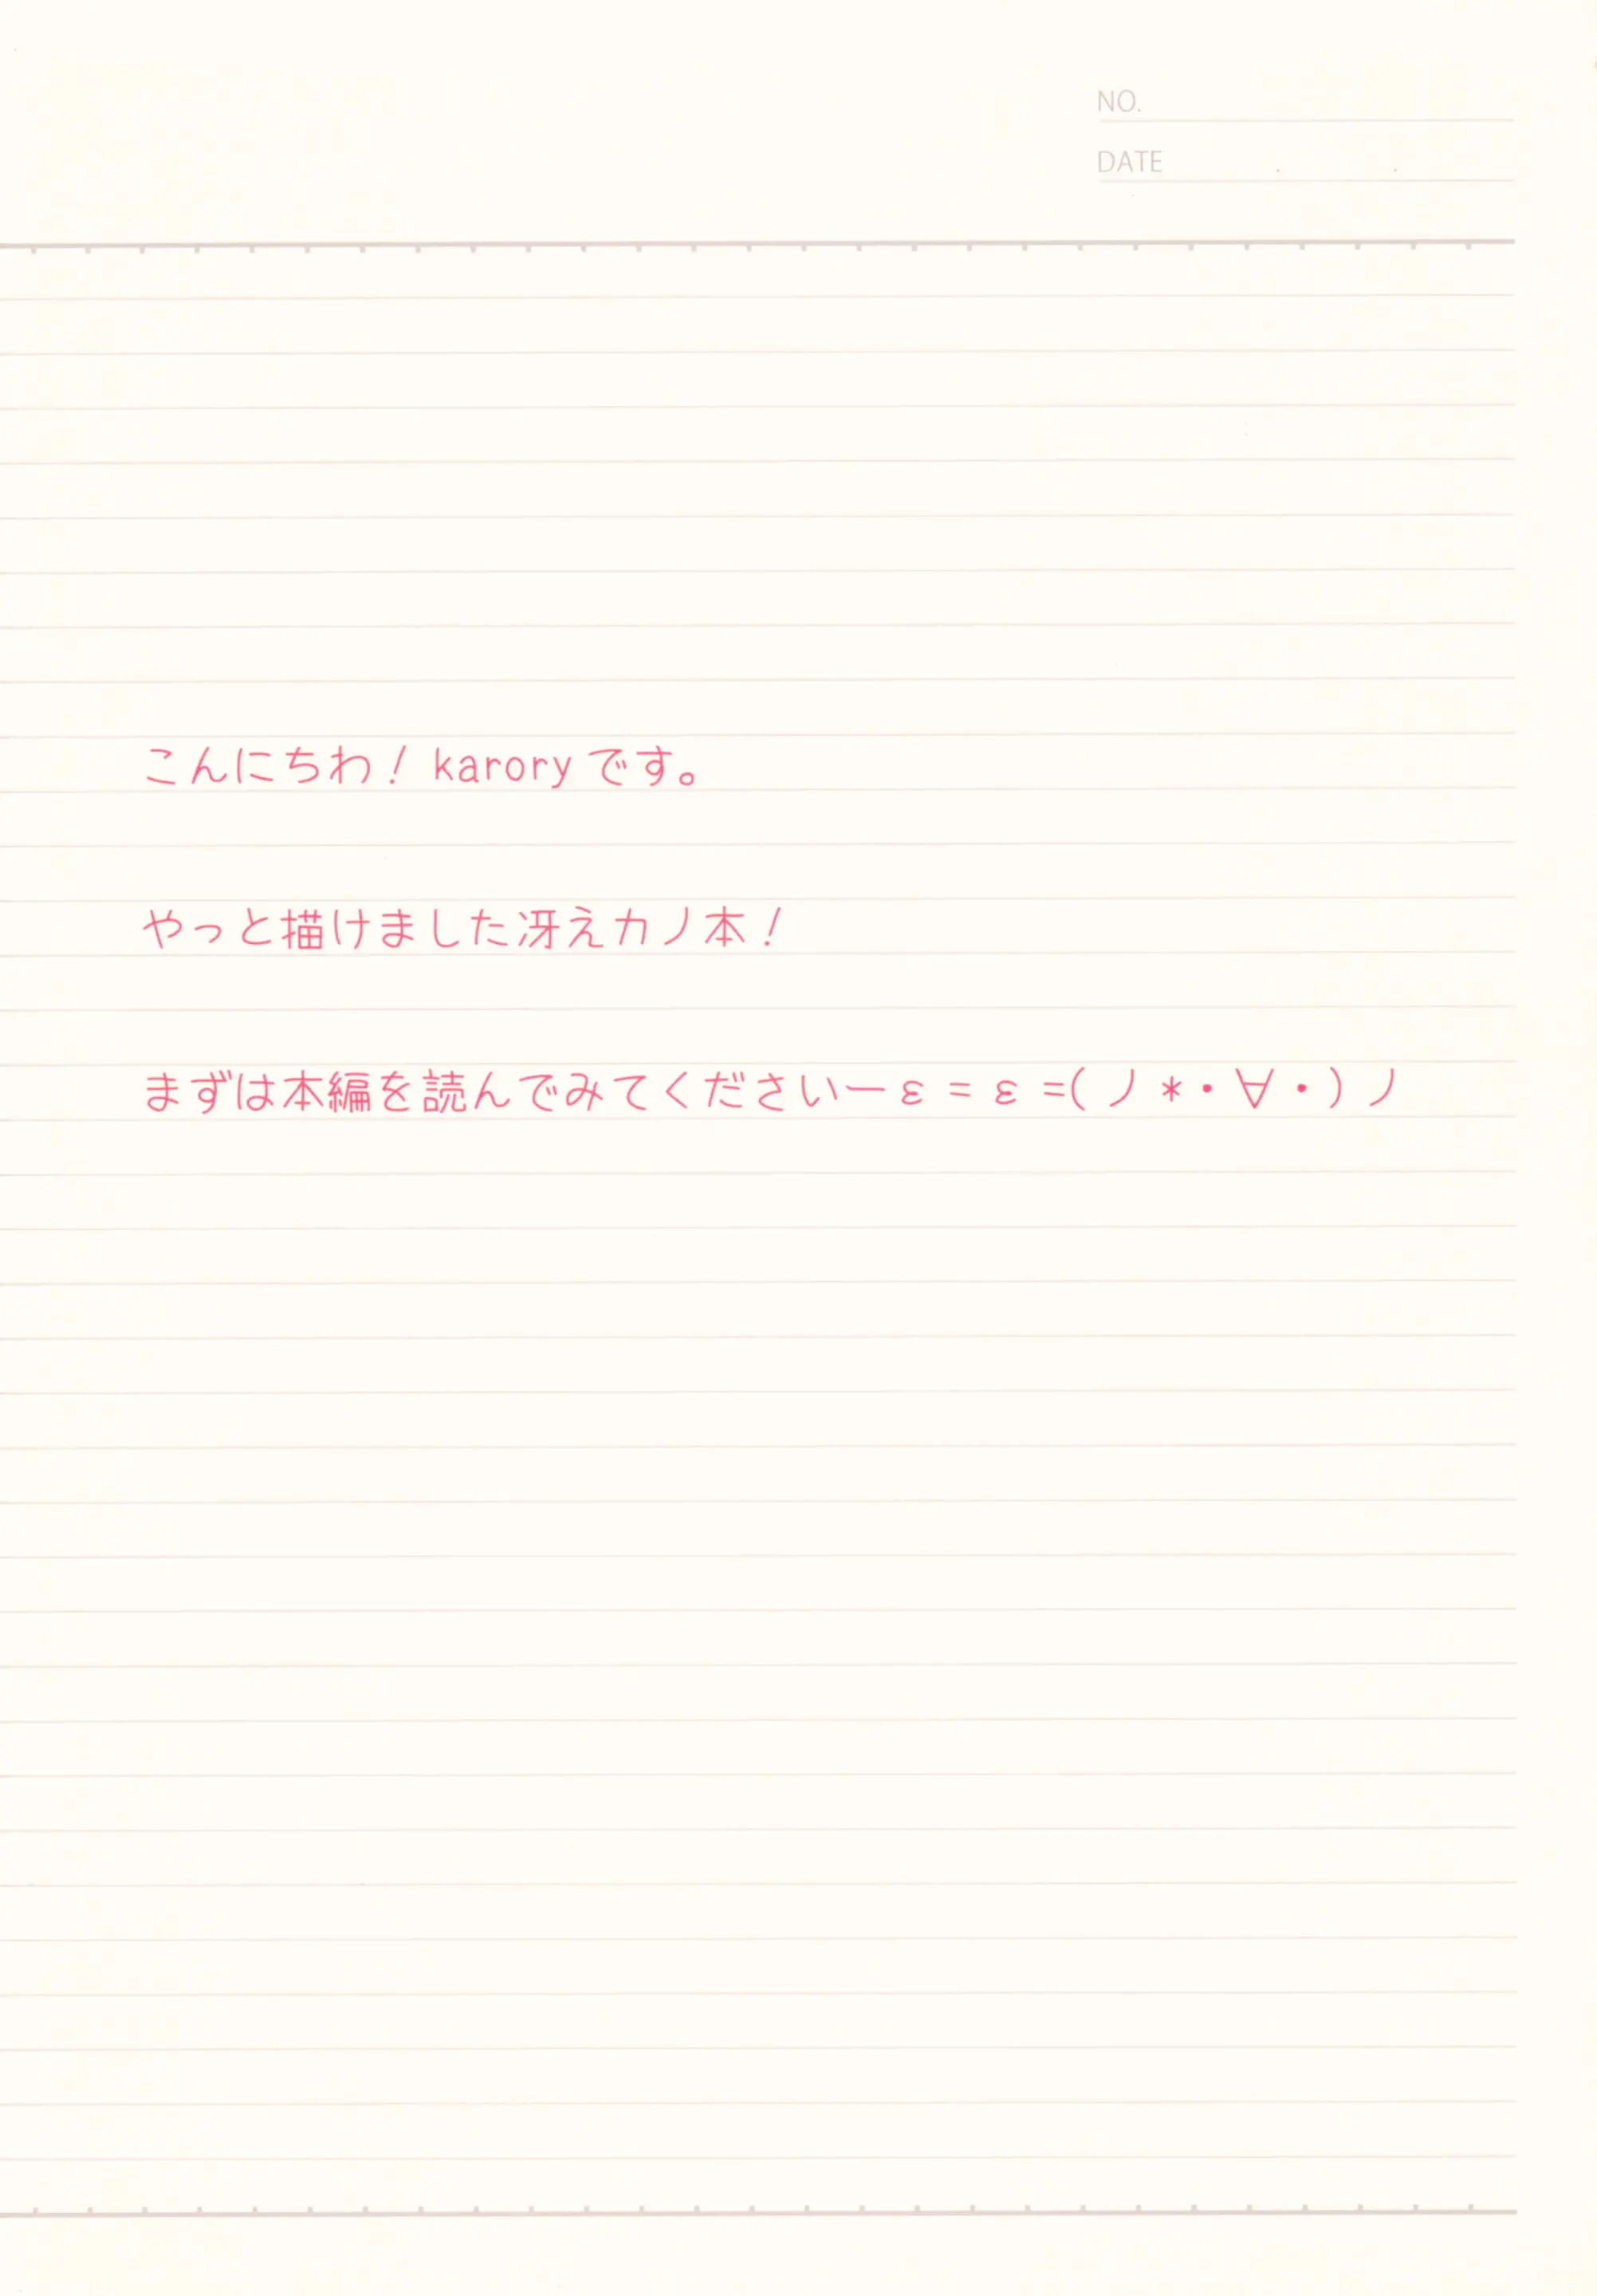 NO.
DATE . .
こんにちわ！karoryです。
やっと描けました冴えカノ本！
まずは本編を読んでみてくださいーε=ε=(ノ*・∀・)ノ